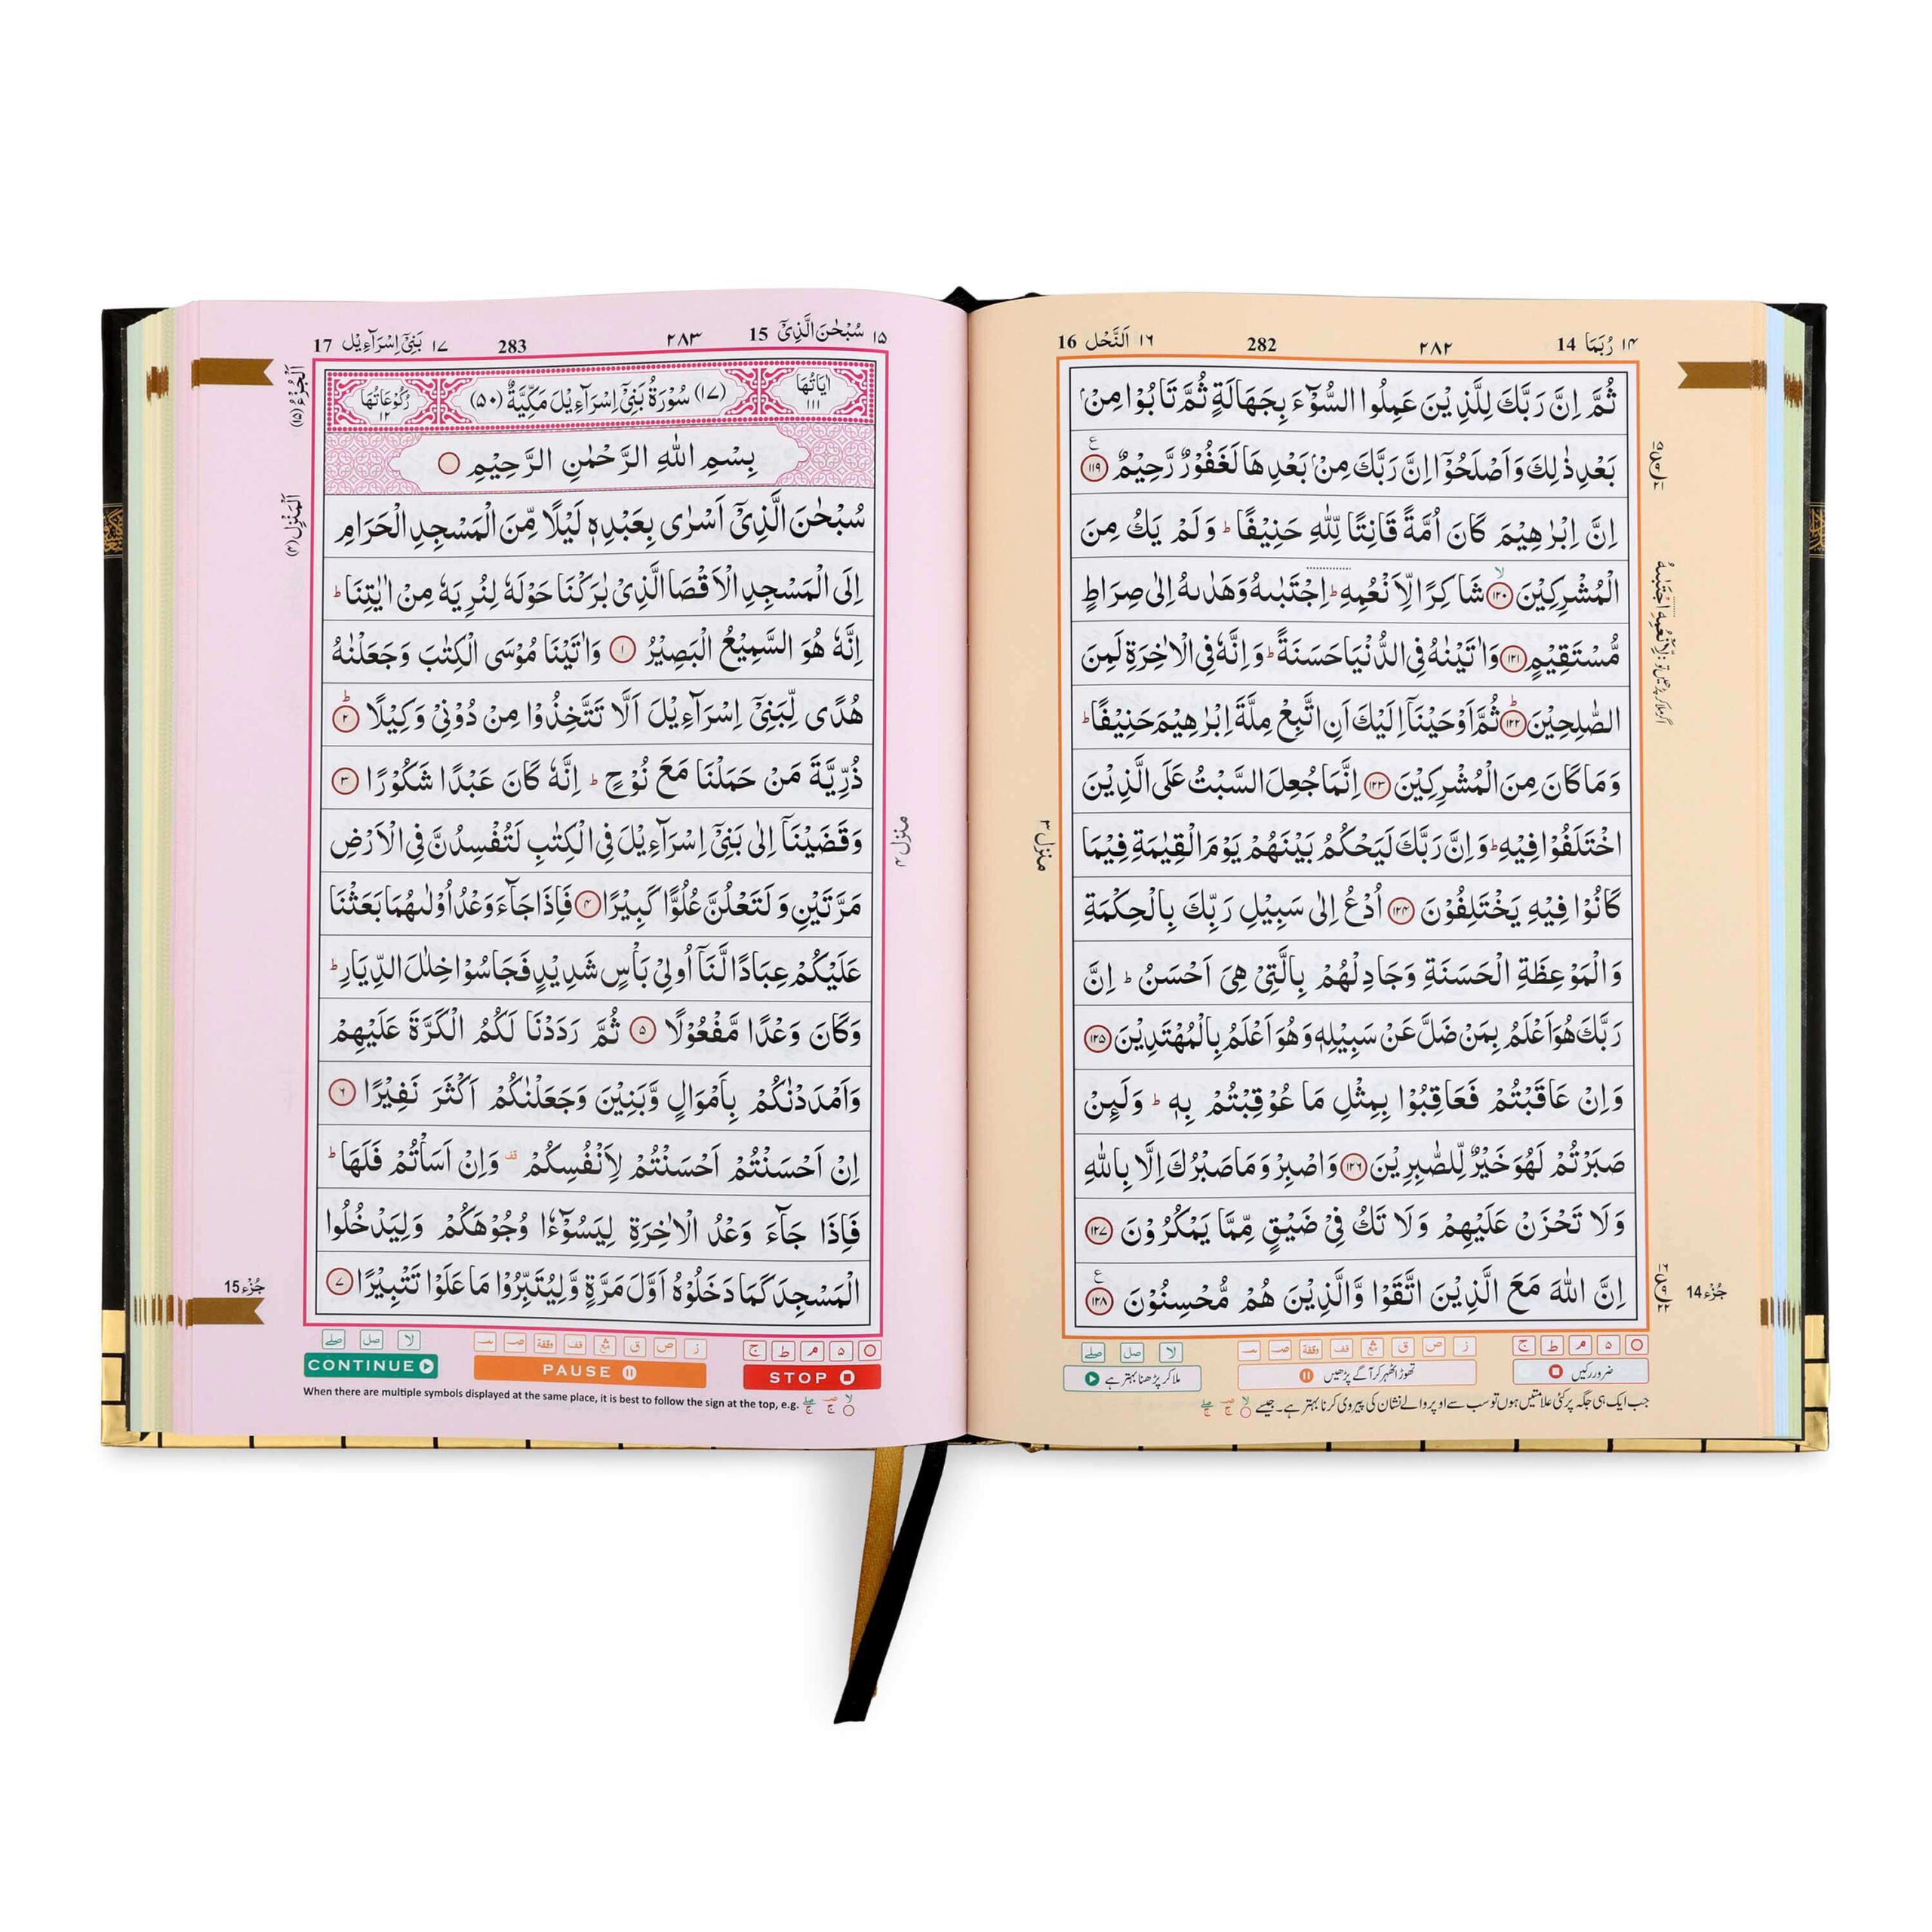 ١٤ رُبَمَا 14
٢٨٢
282
١٦ اَلنَّحْل 16
ثُمَّ اِنَّ رَبَّكَ لِلَّذِيْنَ عَمِلُوا السُّوْٓءَ بِجَهَالَةٍ ثُمَّ تَابُوْا مِنْۢ
بَعْدِ ذٰلِكَ وَاَصْلَحُوْٓا اِنَّ رَبَّكَ مِنْۢ بَعْدِهَا لَغَفُوْرٌ رَّحِيْمٌ ١١٩ ع
اِنَّ اِبْرٰهِيْمَ كَانَ اُمَّةً قَانِتًا لِّلّٰهِ حَنِيْفًا ؕ وَلَمْ يَكُ مِنَ
الْمُشْرِكِيْنَ ۙ ١٢٠ شَاكِرًا لِّاَنْعُمِهٖ ؕ اِجْتَبٰىهُ وَهَدٰىهُ اِلٰى صِرَاطٍ
مُّسْتَقِيْمٍ ١٢١ وَاٰتَيْنٰهُ فِى الدُّنْيَا حَسَنَةً ؕ وَاِنَّهٗ فِى الْاٰخِرَةِ لَمِنَ
الصّٰلِحِيْنَ ؕ ١٢٢ ثُمَّ اَوْحَيْنَاۤ اِلَيْكَ اَنِ اتَّبِعْ مِلَّةَ اِبْرٰهِيْمَ حَنِيْفًا ؕ
وَمَا كَانَ مِنَ الْمُشْرِكِيْنَ ١٢٣ اِنَّمَا جُعِلَ السَّبْتُ عَلَى الَّذِيْنَ
اخْتَلَفُوْا فِيْهِ ؕ وَاِنَّ رَبَّكَ لَيَحْكُمُ بَيْنَهُمْ يَوْمَ الْقِيٰمَةِ فِيْمَا
كَانُوْا فِيْهِ يَخْتَلِفُوْنَ ١٢٤ اُدْعُ اِلٰى سَبِيْلِ رَبِّكَ بِالْحِكْمَةِ
وَالْمَوْعِظَةِ الْحَسَنَةِ وَجَادِلْهُمْ بِالَّتِيْ هِىَ اَحْسَنُ ؕ اِنَّ
رَبَّكَ هُوَ اَعْلَمُ بِمَنْ ضَلَّ عَنْ سَبِيْلِهٖ وَهُوَ اَعْلَمُ بِالْمُهْتَدِيْنَ ١٢٥
وَاِنْ عَاقَبْتُمْ فَعَاقِبُوْا بِمِثْلِ مَا عُوْقِبْتُمْ بِهٖ ؕ وَلَئِنْ
صَبَرْتُمْ لَهُوَ خَيْرٌ لِّلصّٰبِرِيْنَ ١٢٦ وَاصْبِرْ وَمَا صَبْرُكَ اِلَّا بِاللّٰهِ
وَلَا تَحْزَنْ عَلَيْهِمْ وَلَا تَكُ فِيْ ضَيْقٍ مِّمَّا يَمْكُرُوْنَ ١٢٧
اِنَّ اللّٰهَ مَعَ الَّذِيْنَ اتَّقَوْا وَّالَّذِيْنَ هُمْ مُّحْسِنُوْنَ ١٢٨ ع
منزل ٣
جُزْء 14
ضرور رکیں
تھوڑا ٹھہر کر آگے پڑھیں
ملا کر پڑھنا بہتر ہے
جب ایک ہی جگہ پر کئی علامتیں ہوں تو سب سے اوپر والے نشان کی پیروی کرنا بہتر ہے۔ جیسے
١٥ سُبْحٰنَ الَّذِيْٓ 15
٢٨٣
283
١٧ بَنِيْٓ اِسْرَآءِيْل 17
اٰيَاتُهَا ١١١
(١٧) سُوْرَةُ بَنِيْٓ اِسْرَآءِيْلَ مَكِّيَّةٌ (٥٠)
رُكُوْعَاتُهَا ١٢
بِسْمِ اللّٰهِ الرَّحْمٰنِ الرَّحِيْمِ
سُبْحٰنَ الَّذِيْٓ اَسْرٰى بِعَبْدِهٖ لَيْلًا مِّنَ الْمَسْجِدِ الْحَرَامِ
اِلَى الْمَسْجِدِ الْاَقْصَا الَّذِيْ بٰرَكْنَا حَوْلَهٗ لِنُرِيَهٗ مِنْ اٰيٰتِنَا ؕ
اِنَّهٗ هُوَ السَّمِيْعُ الْبَصِيْرُ ١ وَاٰتَيْنَا مُوْسَى الْكِتٰبَ وَجَعَلْنٰهُ
هُدًى لِّبَنِيْٓ اِسْرَآءِيْلَ اَلَّا تَتَّخِذُوْا مِنْ دُوْنِيْ وَكِيْلًا ؕ ٢
ذُرِّيَّةَ مَنْ حَمَلْنَا مَعَ نُوْحٍ ؕ اِنَّهٗ كَانَ عَبْدًا شَكُوْرًا ٣
وَقَضَيْنَاۤ اِلٰى بَنِيْٓ اِسْرَآءِيْلَ فِى الْكِتٰبِ لَتُفْسِدُنَّ فِى الْاَرْضِ
مَرَّتَيْنِ وَلَتَعْلُنَّ عُلُوًّا كَبِيْرًا ٤ فَاِذَا جَآءَ وَعْدُ اُوْلٰىهُمَا بَعَثْنَا
عَلَيْكُمْ عِبَادًا لَّنَاۤ اُولِيْ بَاْسٍ شَدِيْدٍ فَجَاسُوْا خِلٰلَ الدِّيَارِ ؕ
وَكَانَ وَعْدًا مَّفْعُوْلًا ٥ ثُمَّ رَدَدْنَا لَكُمُ الْكَرَّةَ عَلَيْهِمْ
وَاَمْدَدْنٰكُمْ بِاَمْوَالٍ وَّبَنِيْنَ وَجَعَلْنٰكُمْ اَكْثَرَ نَفِيْرًا ٦
اِنْ اَحْسَنْتُمْ اَحْسَنْتُمْ لِاَنْفُسِكُمْ قف وَاِنْ اَسَاْتُمْ فَلَهَا ؕ
فَاِذَا جَآءَ وَعْدُ الْاٰخِرَةِ لِيَسُوْٓءٗا وُجُوْهَكُمْ وَلِيَدْخُلُوا
الْمَسْجِدَ كَمَا دَخَلُوْهُ اَوَّلَ مَرَّةٍ وَّلِيُتَبِّرُوْا مَا عَلَوْا تَتْبِيْرًا ٧
منزل ٤
اَلْجُزْءُ (١٥)
اَلْمَنْزِل (٤)
جُزْء 15
STOP
PAUSE
CONTINUE
When there are multiple symbols displayed at the same place, it is best to follow the sign at the top, e.g.